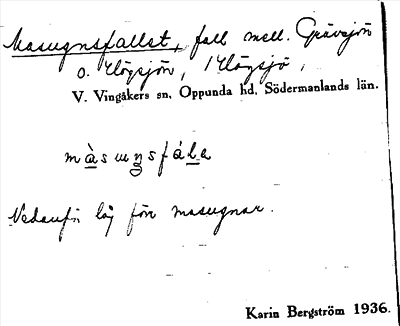 Masugnsfallet, fall mell. Grävsjön
o. Högsjön, i Högsjö,
V. Vingåkers sn, Oppunda hd, Södermanlands län.
màsuŋsfála
Nedanför låg förr masugnar.
Karin Bergström 1936.